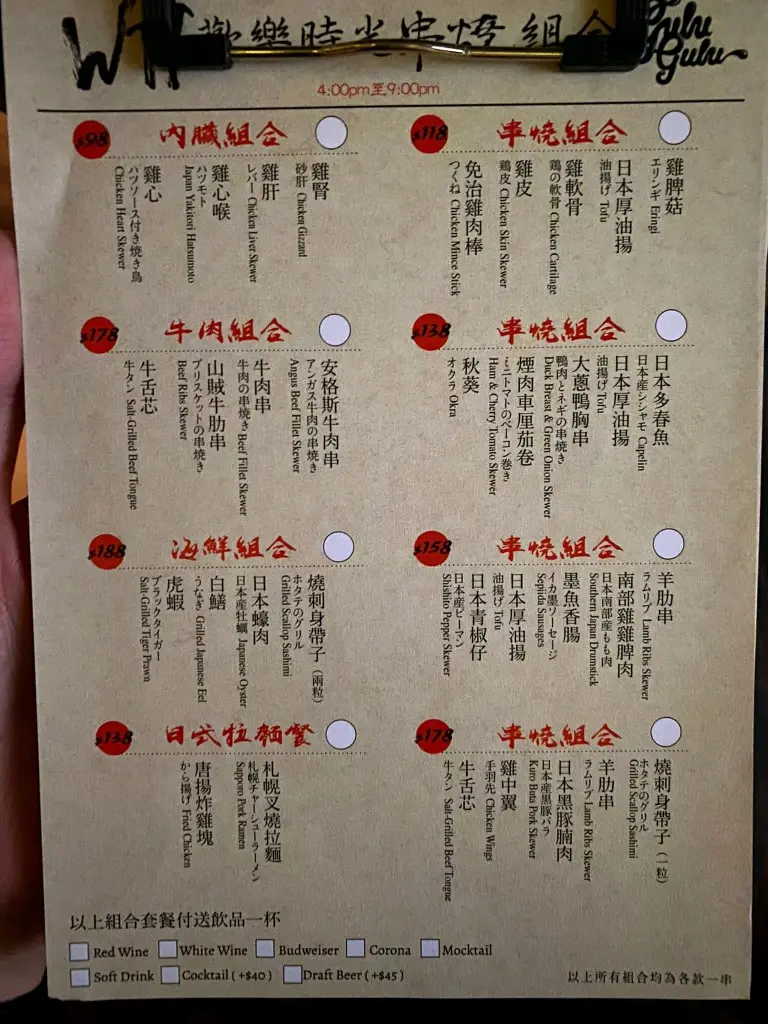 歡樂時光串燒組合
Gulu
Gulu
4:00pm至9:00pm
$98 內臟組合
雞腎
砂肝 Chicken Gizzard
雞肝
レバー Chicken Liver Skewer
雞心喉
ハツモト
Japan Yakitori Hatsumoto
雞心
ハツソース付き焼き鳥
Chicken Heart Skewer
$118 串燒組合
雞脾菇
エリンギ Eringi
日本厚油揚
油揚げ Tofu
雞軟骨
鶏の軟骨 Chicken Cartilage
雞皮
鶏皮 Chicken Skin Skewer
免治雞肉棒
つくね Chicken Mince Stick
$178 牛肉組合
安格斯牛肉串
アンガス牛肉の串焼き
Angus Beef Fillet Skewer
牛肉串
牛肉の串焼き Beef Fillet Skewer
山賊牛肋串
ブリスケットの串焼き
Beef Ribs Skewer
牛舌芯
牛タン Salt-Grilled Beef Tongue
$138 串燒組合
日本多春魚
日本産シシャモ Capelin
日本厚油揚
油揚げ Tofu
大蔥鴨胸串
鴨肉とネギの串焼き
Duck Breast & Green Onion Skewer
煙肉車厘茄卷
ミニトマトのベーコン巻き
Ham & Cherry Tomato Skewer
秋葵
オクラ Okra
$188 海鮮組合
燒刺身帶子（兩粒）
ホタテのグリル
Grilled Scallop Sashimi
日本蠔肉
日本産牡蠣 Japanese Oyster
白鱔
うなぎ Grilled Japanese Eel
虎蝦
ブラックタイガー
Salt-Grilled Tiger Prawn
$158 串燒組合
羊肋串
ラムリブ Lamb Ribs Skewer
南部雞雞脾肉
日本南部産もも肉
Southern Japan Drumstick
墨魚香腸
イカ墨ソーセージ
Sepida Sausages
日本厚油揚
油揚げ Tofu
日本青椒仔
日本産ピーマン
Shishito Pepper Skewer
$138 日式拉麵餐
札幌叉燒拉麵
札幌チャーシューラーメン
Sapporo Pork Ramen
唐揚炸雞塊
から揚げ Fried Chicken
$178 串燒組合
燒刺身帶子（一粒）
ホタテのグリル
Grilled Scallop Sashimi
羊肋串
ラムリブ Lamb Ribs Skewer
日本黑豚腩肉
日本産黒豚バラ
Kuro Buta Pork Skewer
雞中翼
手羽先 Chicken Wings
牛舌芯
牛タン Salt-Grilled Beef Tongue
以上組合套餐付送飲品一杯
Red Wine White Wine Budweiser Corona Mocktail
Soft Drink Cocktail ( +$40 ) Draft Beer ( +$45 )
以上所有組合均為各款一串